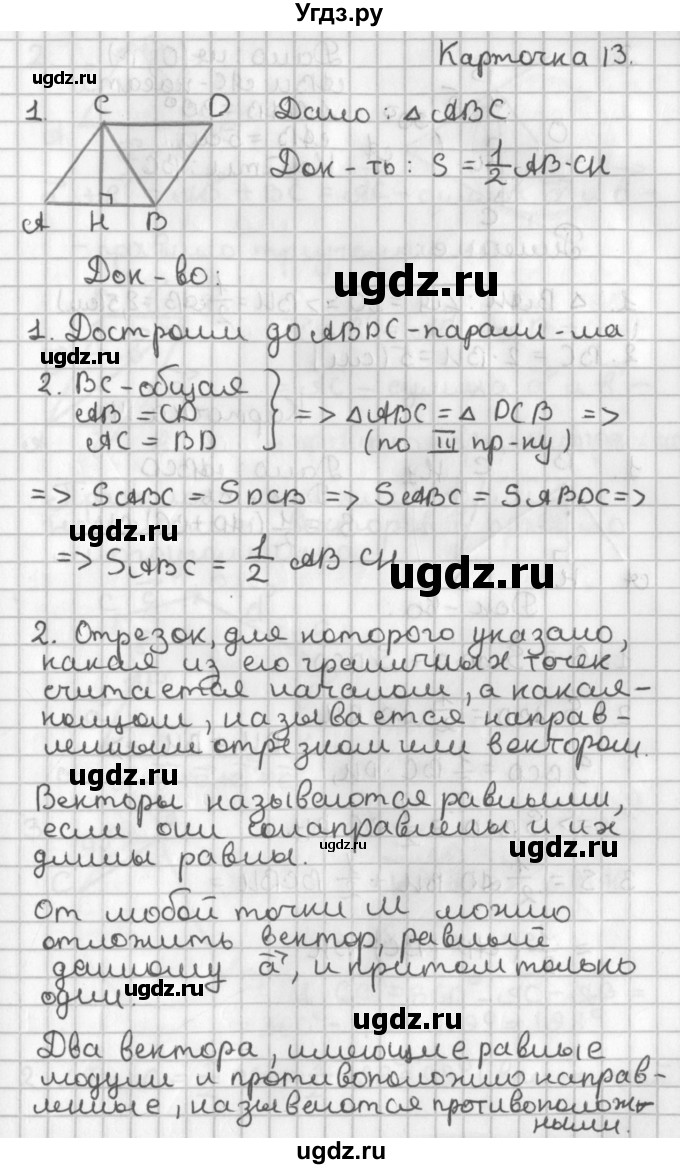 Угдз.ру
ugdz.ru
Карточка 13.
1.
C D
A H B
Дано: △ ABC
Док-ть: S = 1/2 AB·CH
Док-во:
ugdz.ru
1. Достроим до ABDC-парал-ма
ugdz.ru
2. BC-общая
AB = CD
AC = BD
=> △ABC = △ DCB =>
(по III пр-ку)
=> SABC = SDCB => SABC = SABDC =>
ugdz.ru
=> SABC = 1/2 AB·CH
ugdz.ru
2. Отрезок, для которого указано,
какая из его граничных точек
считается началом, а какая-
концом, называется направ-
ленным отрезком или вектором.
ugdz.ru
Векторы называются равными,
если они сонаправлены и их
длины равны.
ugdz.ru
От любой точки M можно
отложить вектор, равный
данному a⃗, и притом только
один.
ugdz.ru
ugdz.ru
Два вектора, имеющие равные
модули и противоположно направ-
ленные, называются противополож-
ными.
ugdz.ru
ugdz.ru